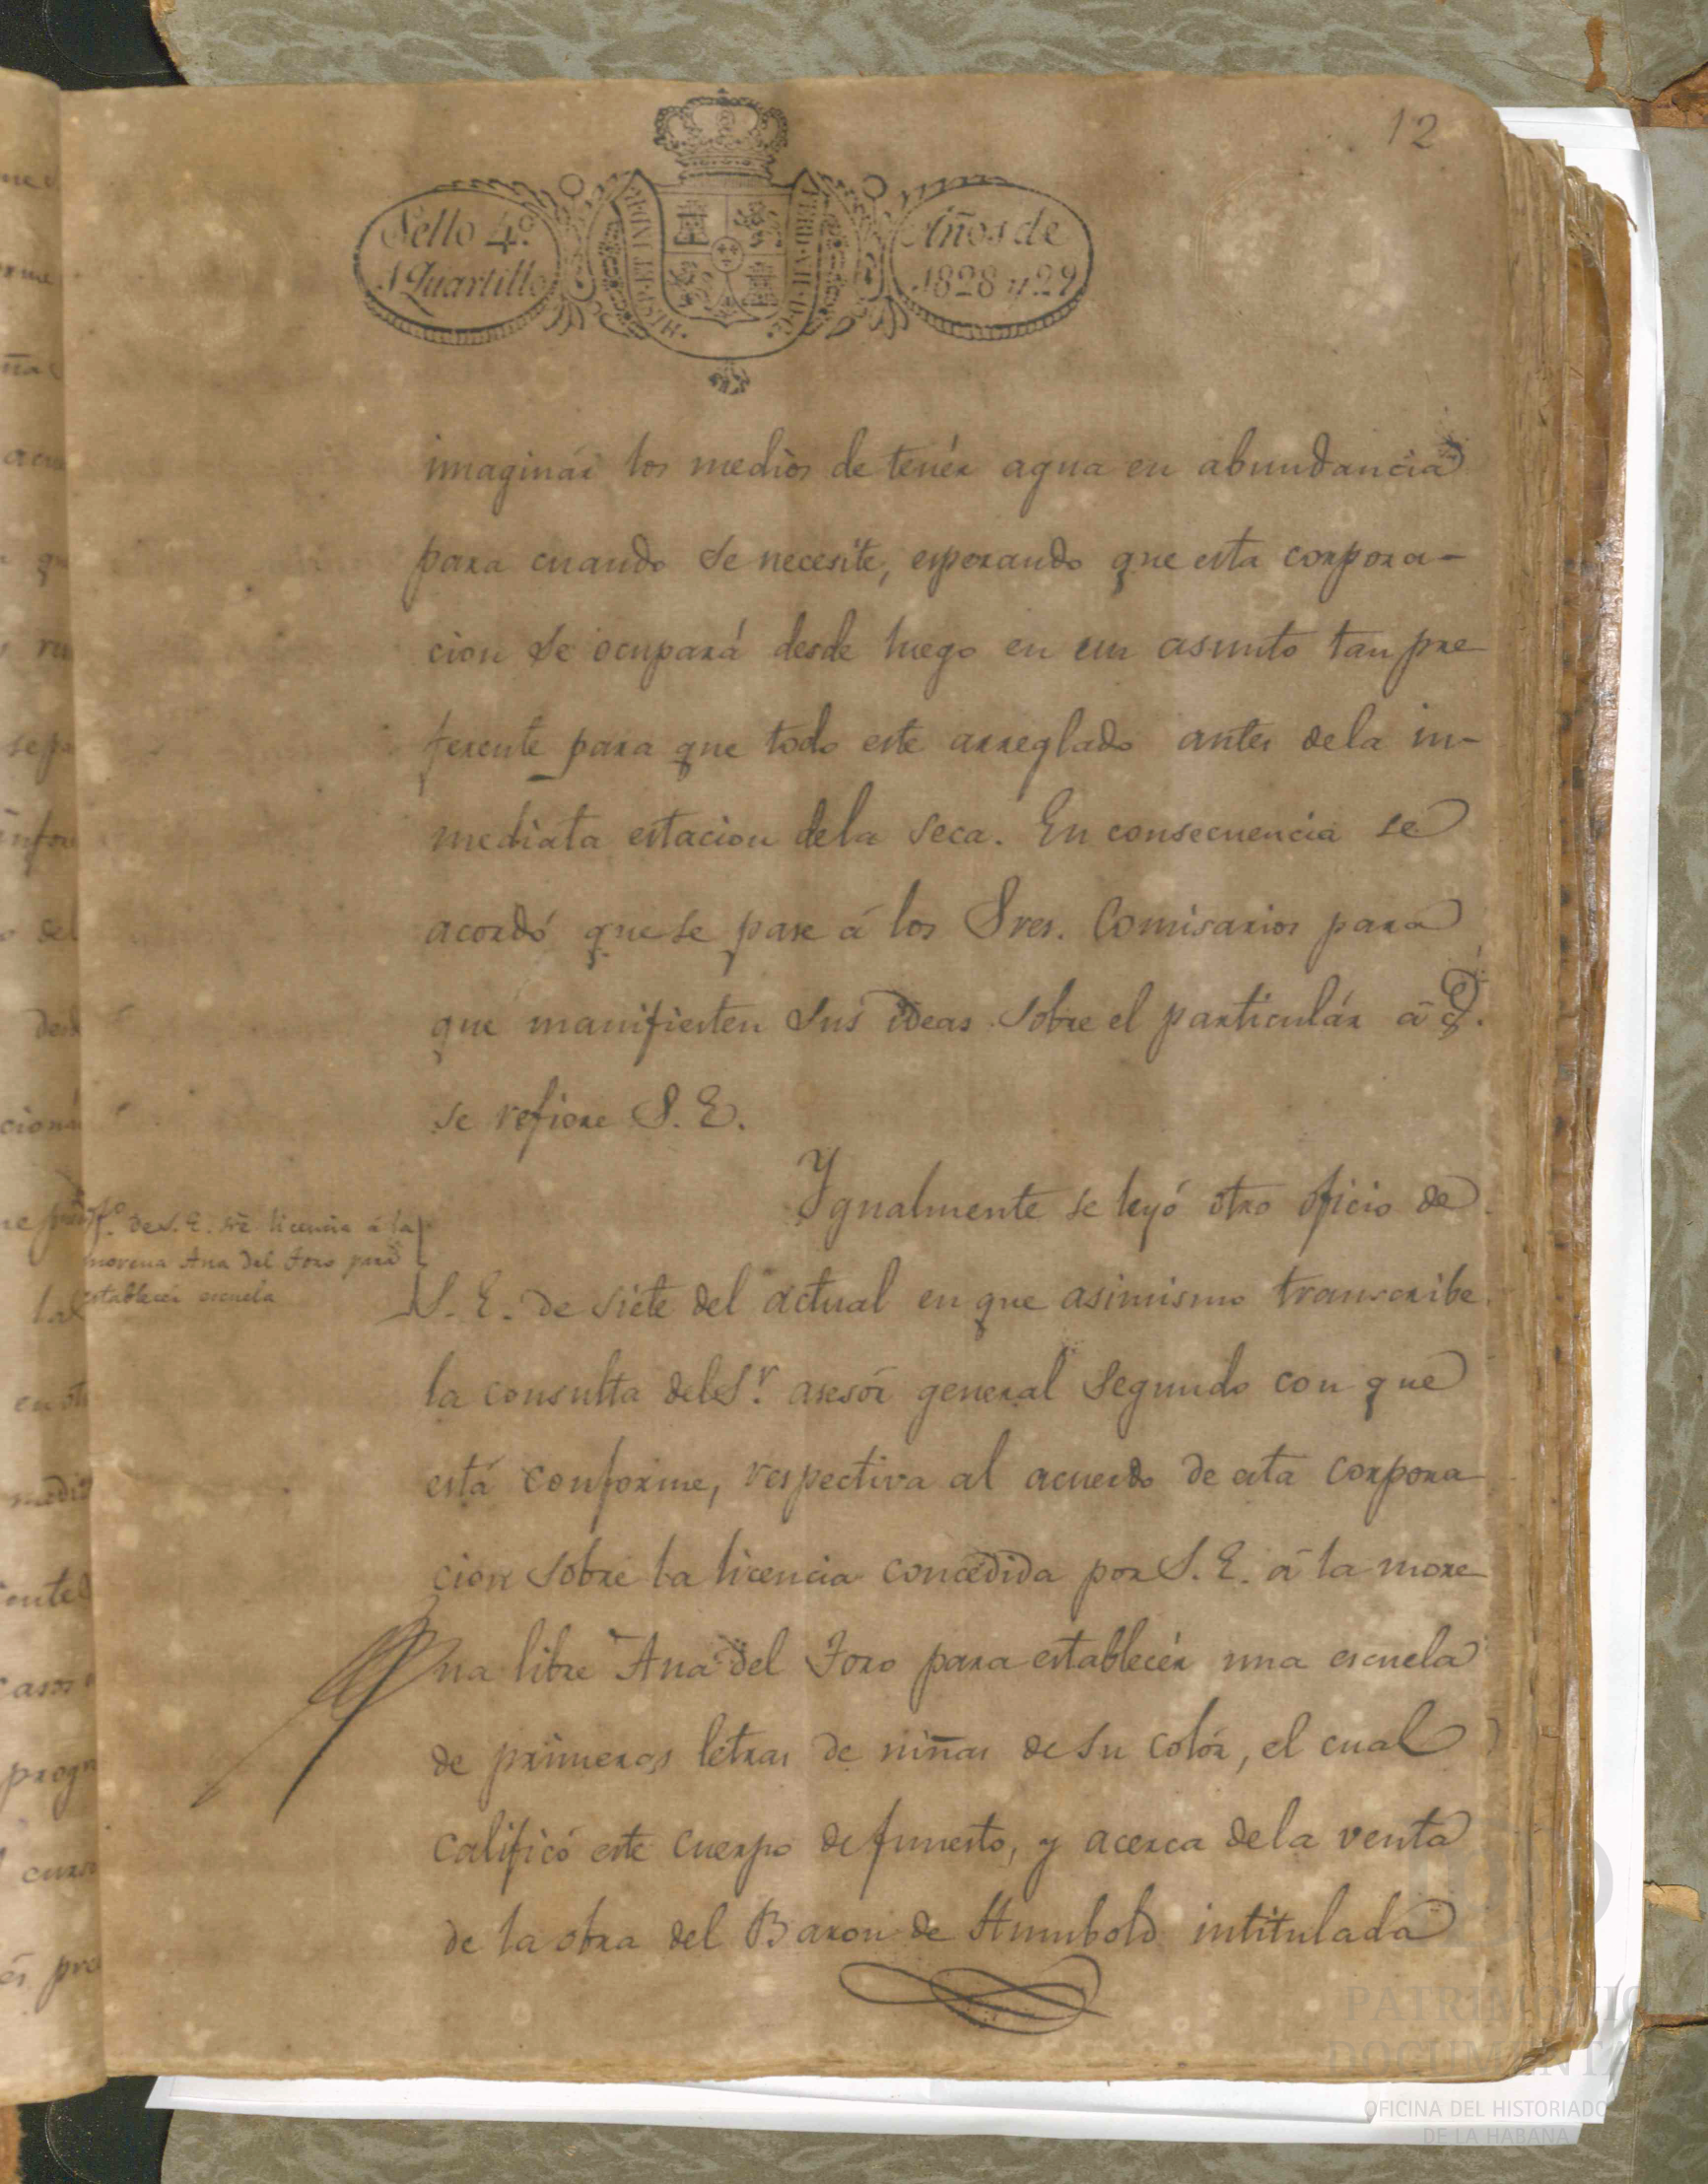 12
Sello 4.º
1 Quartillo
HISP. ET IND. R.
FERD. VII. D. G.
Años de
1828 y 29
imaginár los medios de tenér agua en abundancia
para cuando se necesite, esperando que esta corpora-
cion se ocupará desde luego en un asunto tan pre
ferente para que todo este arreglado antes dela in-
mediata estacion dela seca. En consecuencia se
acordó que se pase á los Sres. Comisarios para
que manifiesten sus ideas sobre el particulár á q.
se refiere S. E.
Ygualmente se leyó otro oficio de
Of.º de S. E. sre licencia á la
morena Ana del Toro para
establecér escuela
S. E. de siete del actual en que asimismo transcribe
la consulta del Sr. asesór general segundo con que
está conforme, respectiva al acuerdo de esta corpora
cion sobre la licencia concedida por S. E. á la more
na libre Ana del Toro para establecér una escuela
de primeras letras de niñas de su colór, el cual
calificó este cuerpo de funesto, y acerca dela venta
de la obra del Baron de Humbold intitulada
PATRIMONIO
DOCUMENTAL
OFICINA DEL HISTORIADOR
DE LA HABANA